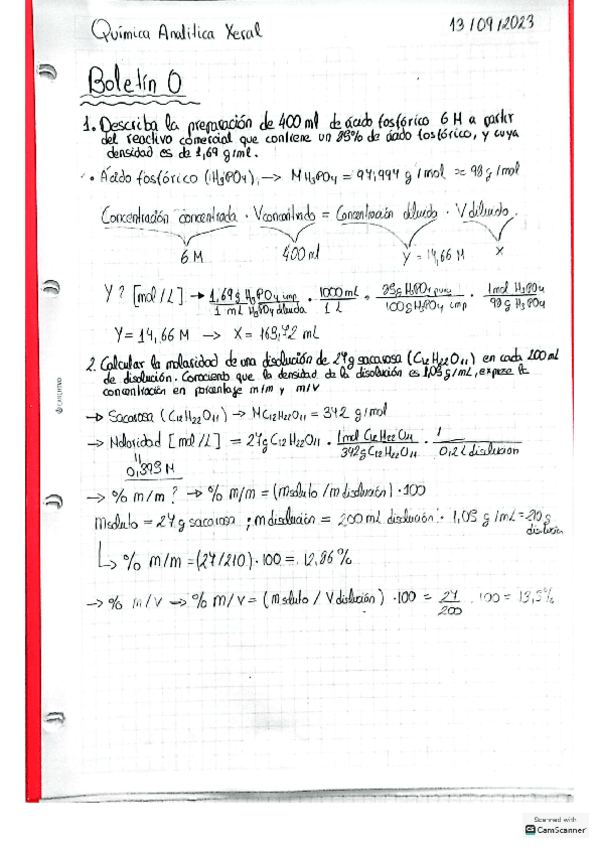 Química Analítica Xeral 13/09/2023
Boletín 0
1. Describa la preparación de 400 ml de ácido fosfórico 6 M a partir
del reactivo comercial que contiene un 85% de ácido fosfórico, y cuya
densidad es de 1,69 g/ml.
• Ácido fosfórico (H3PO4) → MH3PO4 = 97,994 g/mol ≈ 98 g/mol
Concentración concentrada · Vconcentrado = Concentración diluido · Vdiluido.
6 M 400 ml y = 14,66 M x
Y? [mol/L] → 1,69 g H3PO4 imp / 1 mL H3PO4 diluida · 1000 mL / 1 L · 85 g H3PO4 puro / 100 g H3PO4 imp · 1 mol H3PO4 / 98 g H3PO4
Y = 14,66 M → X = 163,72 mL
2. Calcular la molaridad de una disolución de 27 g sacarosa (C12H22O11) en cada 200 ml
de disolución. Conociendo que la densidad de la disolución es 1,05 g/mL, exprese la
concentración en porcentaje m/m y m/V
→ Sacarosa (C12H22O11) → MC12H22O11 = 342 g/mol
→ Molaridad [mol/L] = 27 g C12H22O11 · 1 mol C12H22O11 / 342 g C12H22O11 · 1 / 0,2 L disolucion
"
0,393 M
→ % m/m? → % m/m = (msoluto / m disolución) · 100
Msoluto = 27 g sacarosa ; m disolución = 200 mL disolución · 1,05 g/mL = 210 g
↳ % m/m = (27/210) · 100 = 12,86 %
→ % m/v → % m/v = (m soluto / V disolución) · 100 = 27/200 · 100 = 13,5 %
Scanned with
CS CamScanner